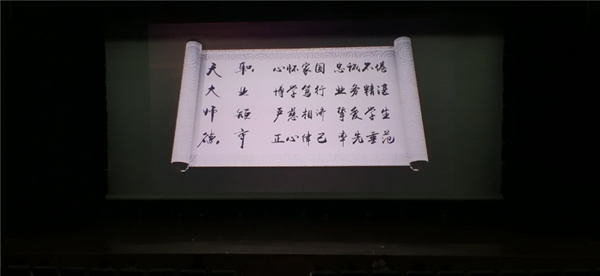 天大师德
职业
心怀家国 忠诚不
博学笃行 业务精湛
严慈相济 挚爱学生
正心律己 率先垂范